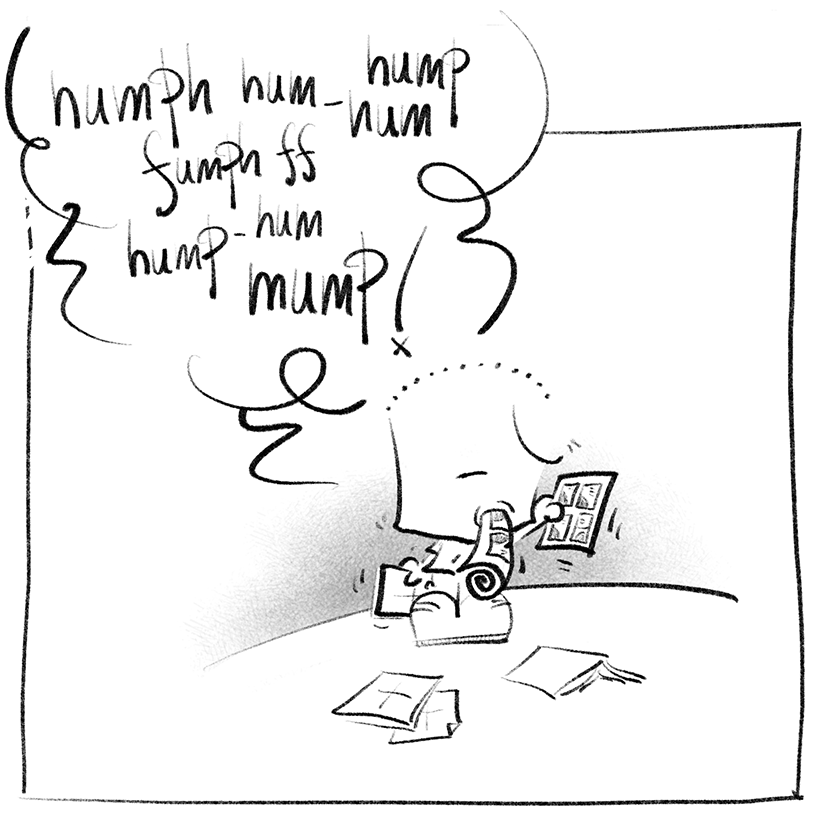 humph hum-hump
hum
fumph ff
hump-hum
mump